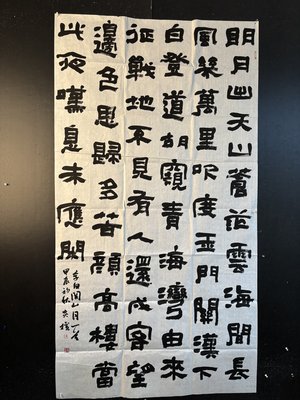 明月出天山蒼茫雲海間長
風幾萬里吹度玉門關漢下
白登道胡窺青海灣由來
征戰地不見有人還戍客望
邊色思歸多苦顏高樓當
此夜嘆息未應閑
李白關山月一首
甲辰初秋